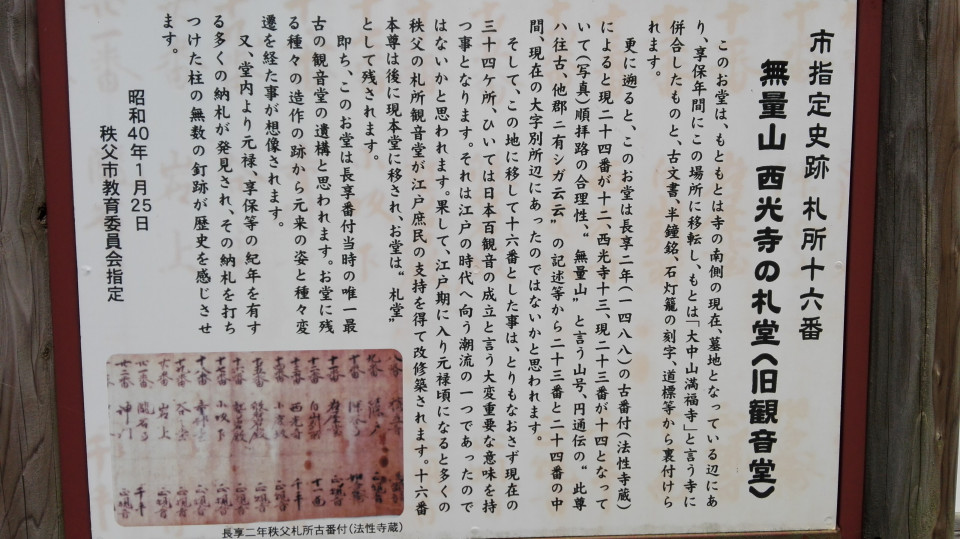 市指定史跡 札所十六番
無量山 西光寺の札堂〈旧観音堂〉
このお堂は、もともとは寺の南側の現在、墓地となっている辺にあ
り、享保年間にこの場所に移転し、もとは「大中山満福寺」と言う寺に
併合したものと、古文書、半鐘銘、石灯籠の刻字、道標等から裏付けら
れます。
更に遡ると、このお堂は長享二年(一四八八)の古番付(法性寺蔵)
によると現二十四番が十二、西光寺十三、現二十三番が十四となって
いて(写真)順拝路の合理性、“無量山”と言う山号、円通伝の“此尊
ハ往古、他郡ニ有シガ云云”の記述等から二十三番と二十四番の中
間、現在の大字別所辺にあったのではないかと思われます。
そして、この地に移して十六番とした事は、とりもなおさず現在の
三十四ケ所、ひいては日本百観音の成立と言う大変重要な意味を持
つ事となります。それは江戸の時代へ向う潮流の一つであったので
はないかと思われます。果して、江戸期に入り元禄頃になると多くの
秩父の札所観音堂が江戸庶民の支持を得て改修築されます。十六番
本尊は後に現本堂に移され、お堂は“札堂”
として残されます。
即ち、このお堂は長享番付当時の唯一最
古の観音堂の遺構と思われます。お堂に残
る種々の造作の跡から元来の姿と種々変
遷を経た事が想像されます。
又、堂内より元禄、享保等の紀年を有す
る多くの納札が発見され、その納札を打ち
つけた柱の無数の釘跡が歴史を感じさせ
ます。
昭和40年1月25日
秩父市教育委員会指定
長享二年秩父札所古番付(法性寺蔵)